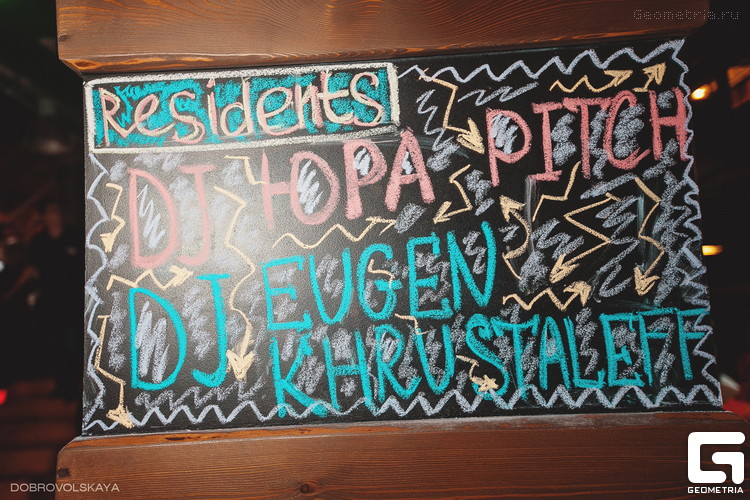 Geometria.ru
Residents
DJ ЮРА PITCH
DJ EUGEN
KHRUSTALEFF
DOBROVOLSKAYA
GEOMETRIA